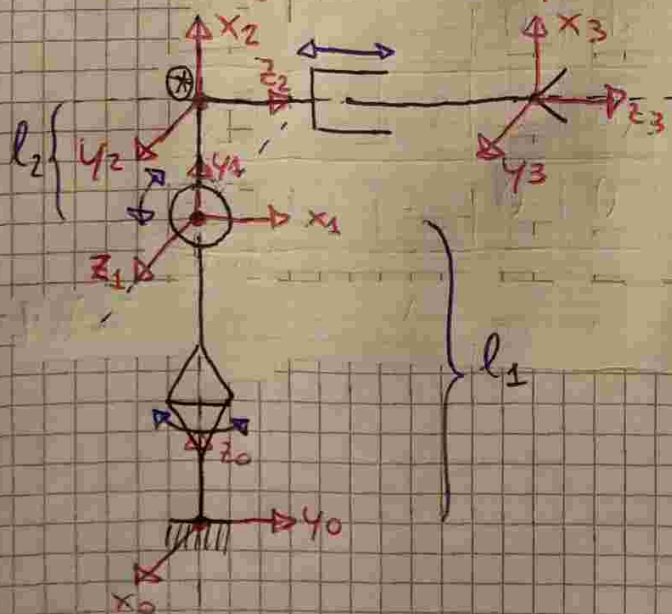 x2
x3
*
z2
z3
l2
y2
y1
y3
x1
z1
l1
z0
y0
x0